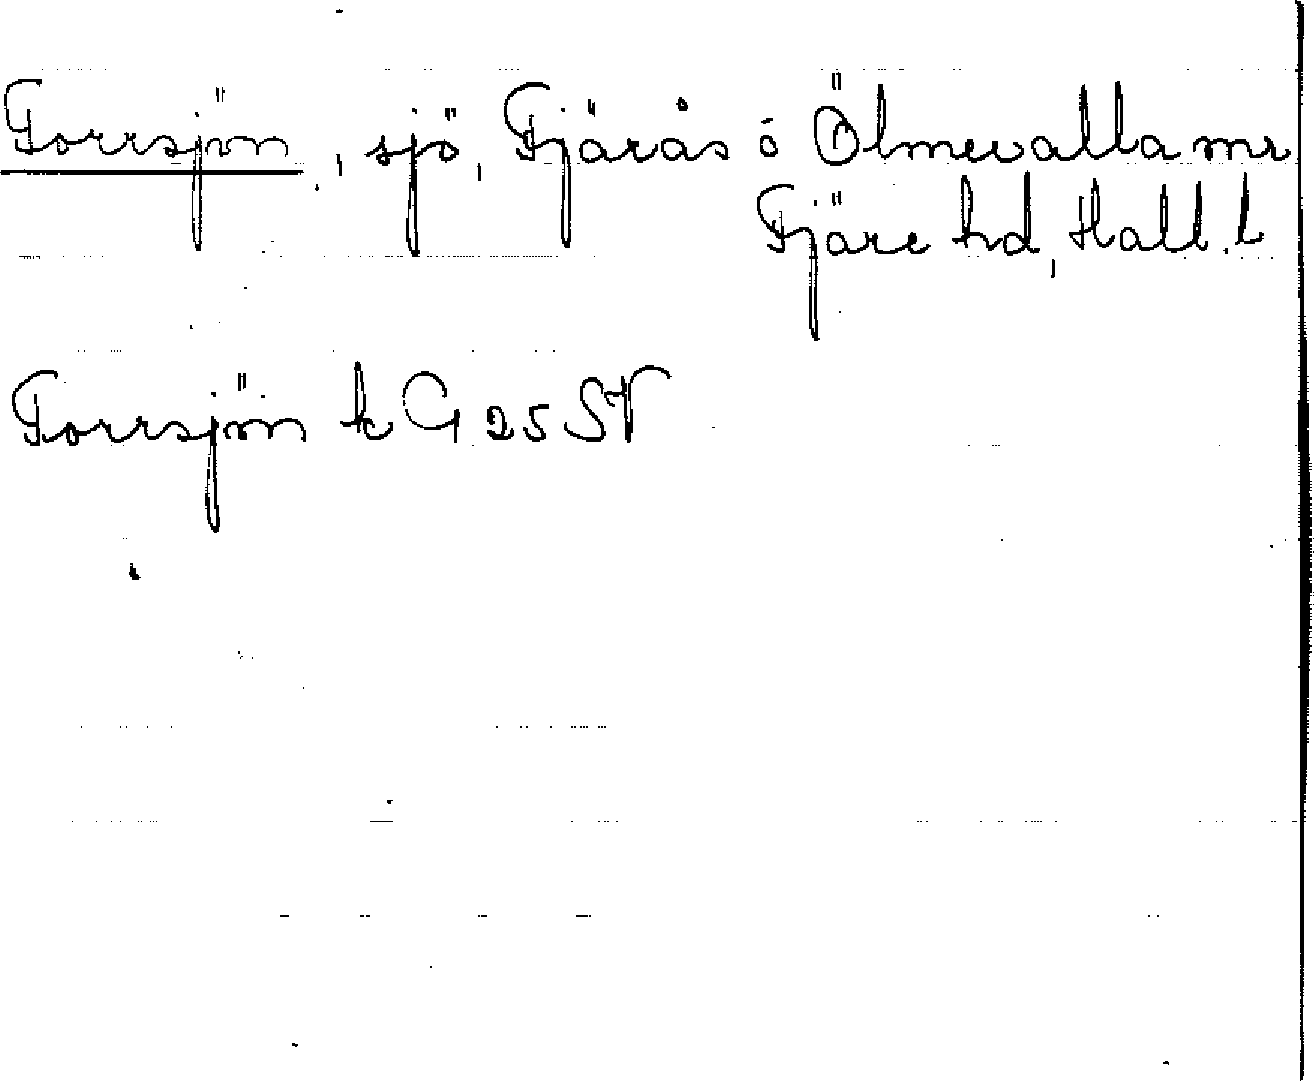 Torrsjön, sjö, Fjärås o Ölmevalla snr
Fjäre hd, Hall. l
Torrsjön kG 25 SV